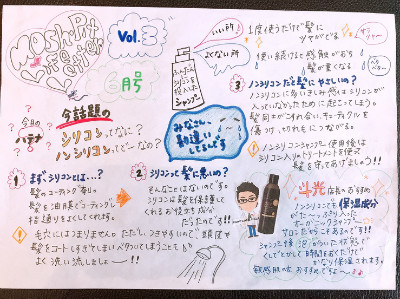 Mosh Pit
Life
Vol.3
6月号
ふんだんに
シリコンを
使用した
シャンプー
いい所
よくない所
1度使うだけで髪に
ツヤがでる
使い続けると感触が
髪が重くなる
今日の
ハテナ
今話題の
シリコンってなに?
ノンシリコンってどーなの?
みなさん
勘違い
してるんです
1 まずシリコンとは…?
髪のコーティング剤。
髪を油膜でコーティングし
指通りをよくしてくれます。
毛穴にはつまりません。ただし、つきやすいので、頭皮や
髪をコートしすぎてしまいベタつくってしまうことも
よく洗い流しましょー!!
2 シリコンって髪に悪いの?
そんなことはないのです。
シリコンは髪を保護して
くれるお役立ち成分
だったのです!!
3 ノンシリコンだと髪にやさしいの?
ノンシリコンに多いきしみ感はシリコンが
入っていなかったために起こってしまう。
髪同士がこすれ合い、キューティクルを
傷つけ、切れ毛につながる。
ノンシリコンシャンプー使用後は
シリコン入りのトリートメントを使って
髪を守ってあげましょう!!
斗光 店長のおすすめ
ノンシリコンでも保湿成分
が たっぷり入った
サロンだからこそあるのです!!
シャンプー
かなり保湿されます。
敏感肌の方おすすめですよ